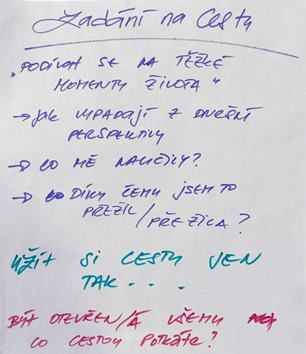 Zadání na Cestu
„PODÍVAT SE NA TĚŽKÉ
MOMENTY ŽIVOTA"
→ JAK VYPADAJÍ Z DNEŠNÍ
PERSPEKTIVY
→ CO MĚ NAUČILY?
→ DÍKY ČEMU JSEM TO
PŘEŽIL/PŘEŽILA?
UŽÍT SI CESTU JEN
TAK....
BÝT OTEVŘEN/Á VŠEMU
CO CESTOU POTKÁTE?